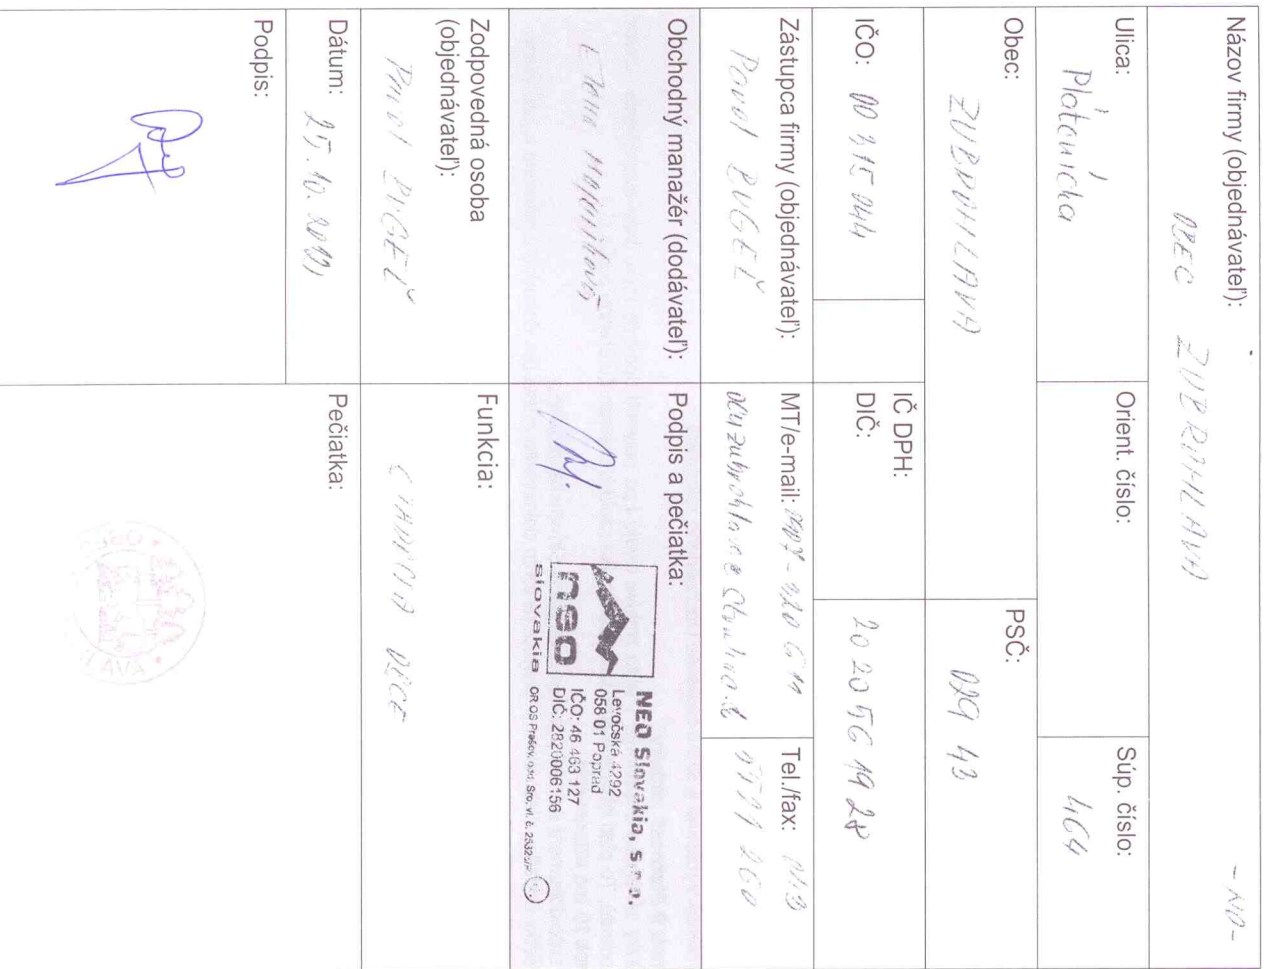 Názov firmy (objednávateľ):
OBEC ZUBROHLAVA
Ulica:
Plátenícka
Orient. číslo:
Súp. číslo:
464
Obec:
ZUBROHLAVA
PSČ:
029 43
IČO: 00 315 044
IČ DPH:
DIČ:
20 20 56 19 28
Zástupca firmy (objednávateľ):
Pavol BUGEĽ
MT/e-mail:
Tel./fax: 043
260
Obchodný manažér (dodávateľ):
Podpis a pečiatka:
neo
slovakia
NEO Slovakia, s.r.o.
Levočská 4292
058 01 Poprad
IČO: 46 463 127
DIČ: 2820006156
OR OS Prešov, odd. Sro, vl. č.
Zodpovedná osoba
(objednávateľ):
Pavol BUGEĽ
Funkcia:
STAROSTA OBCE
Dátum: 25. 10.
Podpis:
Pečiatka: